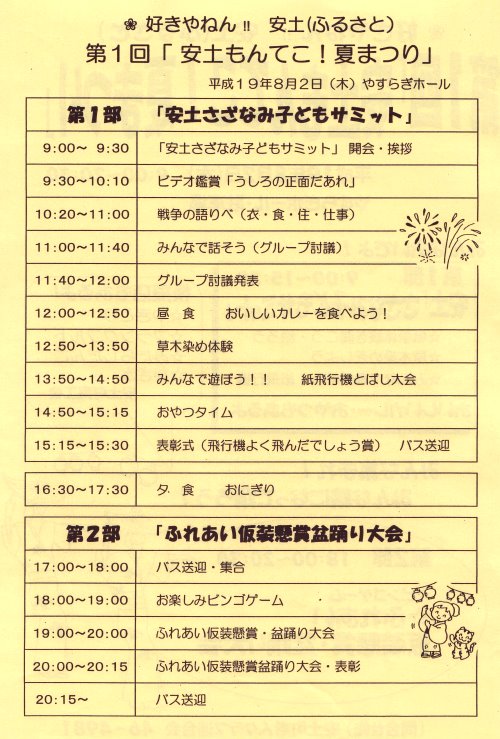 ❀ 好きやねん !! 安土(ふるさと)
第1回「 安土もんてこ！夏まつり」
平成19年8月2日（木）やすらぎホール
第1部 「安土さざなみ子どもサミット」
9:00～ 9:30 「安土さざなみ子どもサミット」 開会・挨拶
9:30～10:10 ビデオ鑑賞「うしろの正面だあれ」
10:20～11:00 戦争の語りべ（衣・食・住・仕事）
11:00～11:40 みんなで話そう（グループ討議）
11:40～12:00 グループ討議発表
12:00～12:50 昼 食 おいしいカレーを食べよう！
12:50～13:50 草木染め体験
13:50～14:50 みんなで遊ぼう！！ 紙飛行機とばし大会
14:50～15:15 おやつタイム
15:15～15:30 表彰式（飛行機よく飛んだでしょう賞） バス送迎
16:30～17:30 夕 食 おにぎり
第2部 「ふれあい仮装懸賞盆踊り大会」
17:00～18:00 バス送迎・集合
18:00～19:00 お楽しみビンゴゲーム
19:00～20:00 ふれあい仮装懸賞・盆踊り大会
20:00～20:15 ふれあい仮装懸賞盆踊り大会・表彰
20:15～ バス送迎